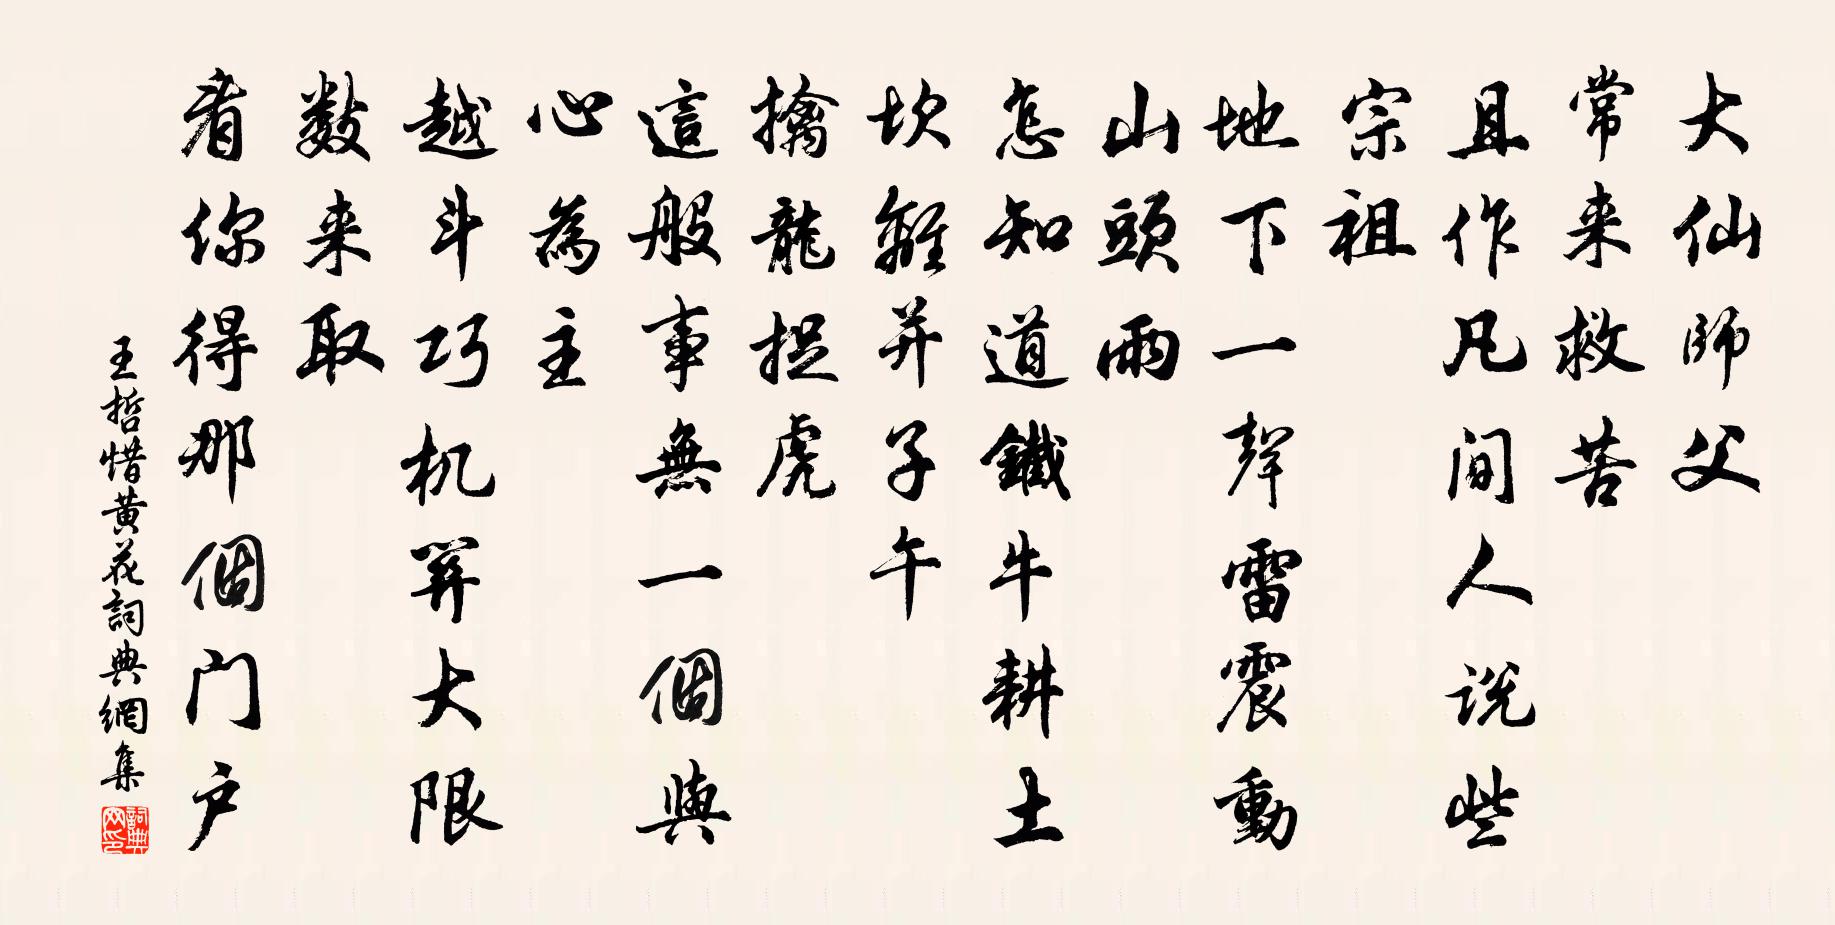 大仙師父
常来救苦
且作凡间人说些
宗祖
地下一聲雷震動
山頭雨
怎知道鐵牛耕土
坎離并子午
擒龍捉虎
這般事無一個與
心為主
越斗巧机筭大限
数来取
看你得那個门户
王哲惜黄花詞典網集
詞典网印